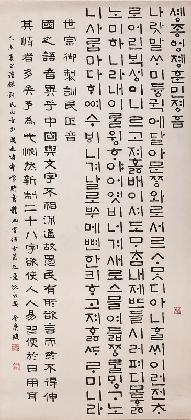 솅종엉졩훈민졍흠
나랏말ᄊᆞ미듕귁에달아문ᄍᆞᆼ와로서르ᄉᆞᄆᆞᆺ디아니ᄒᆞᆯᄊᆡ이런젼ᄎᆞ
로어린ᄇᆡᆨ셩이니르고져호ᇙ배이셔도ᄆᆞᄎᆞᆷ내제ᄠᅳ들시러펴디몯ᄒᆞᇙ
노미하니라내이ᄅᆞᆯ윙ᄒᆞ야어엿비너겨새로스믈여듧ᄍᆞᆼᄅᆞᆯᄆᆡᇰᄀᆞ노
니사ᄅᆞᆷ마다ᄒᆡᅇᅧ수ᄫᅵ니겨날로ᄡᅮ메뼌한킈ᄒᆞ고져ᄒᆞᇙᄯᆞᄅᆞ미니라
世宗御製訓民正音
國之語音異乎中國與文字不相流通故愚民有所欲言而終不得伸
其情者多矣予為此憫然新制二十八字欲使人人易習便於日用耳